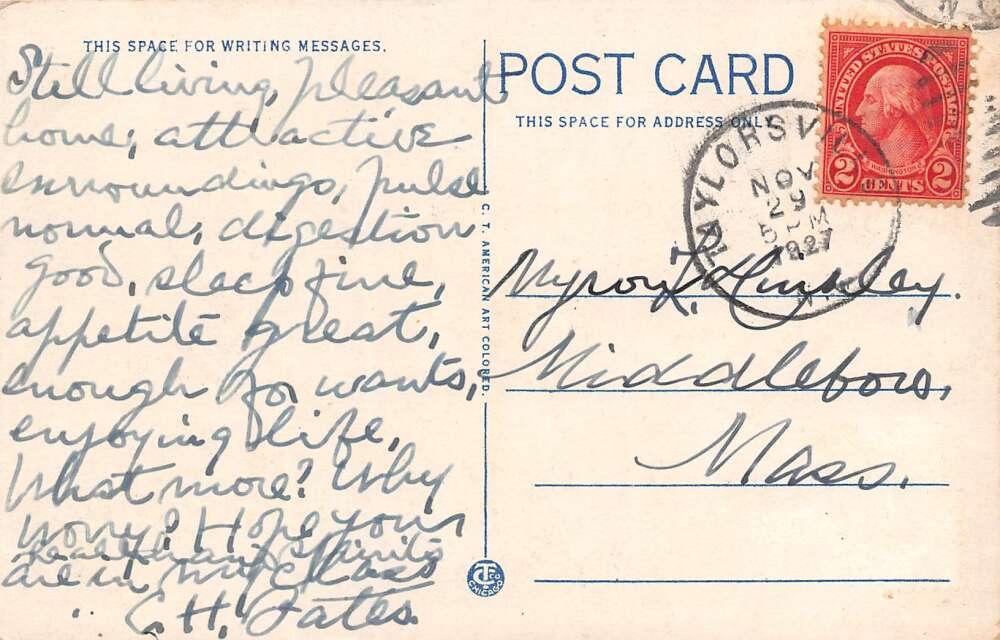 THIS SPACE FOR WRITING MESSAGES.
Still living, pleasant
home, attractive
surroundings, pulse
normal, digestion
good, sleep fine,
appetite great,
enough for wants,
enjoying life,
What more? Why
worry? Hope your
health and spirits
are in my class
E. H. Gates.
C. T. AMERICAN ART COLORED.
POST CARD
THIS SPACE FOR ADDRESS ONLY
UNITED STATES POSTAGE
WASHINGTON
2 CENTS 2
NOV
29
5 PM
1927
Myron L. Hinkley.
Middleboro,
Mass.
CT CO
CHICAGO